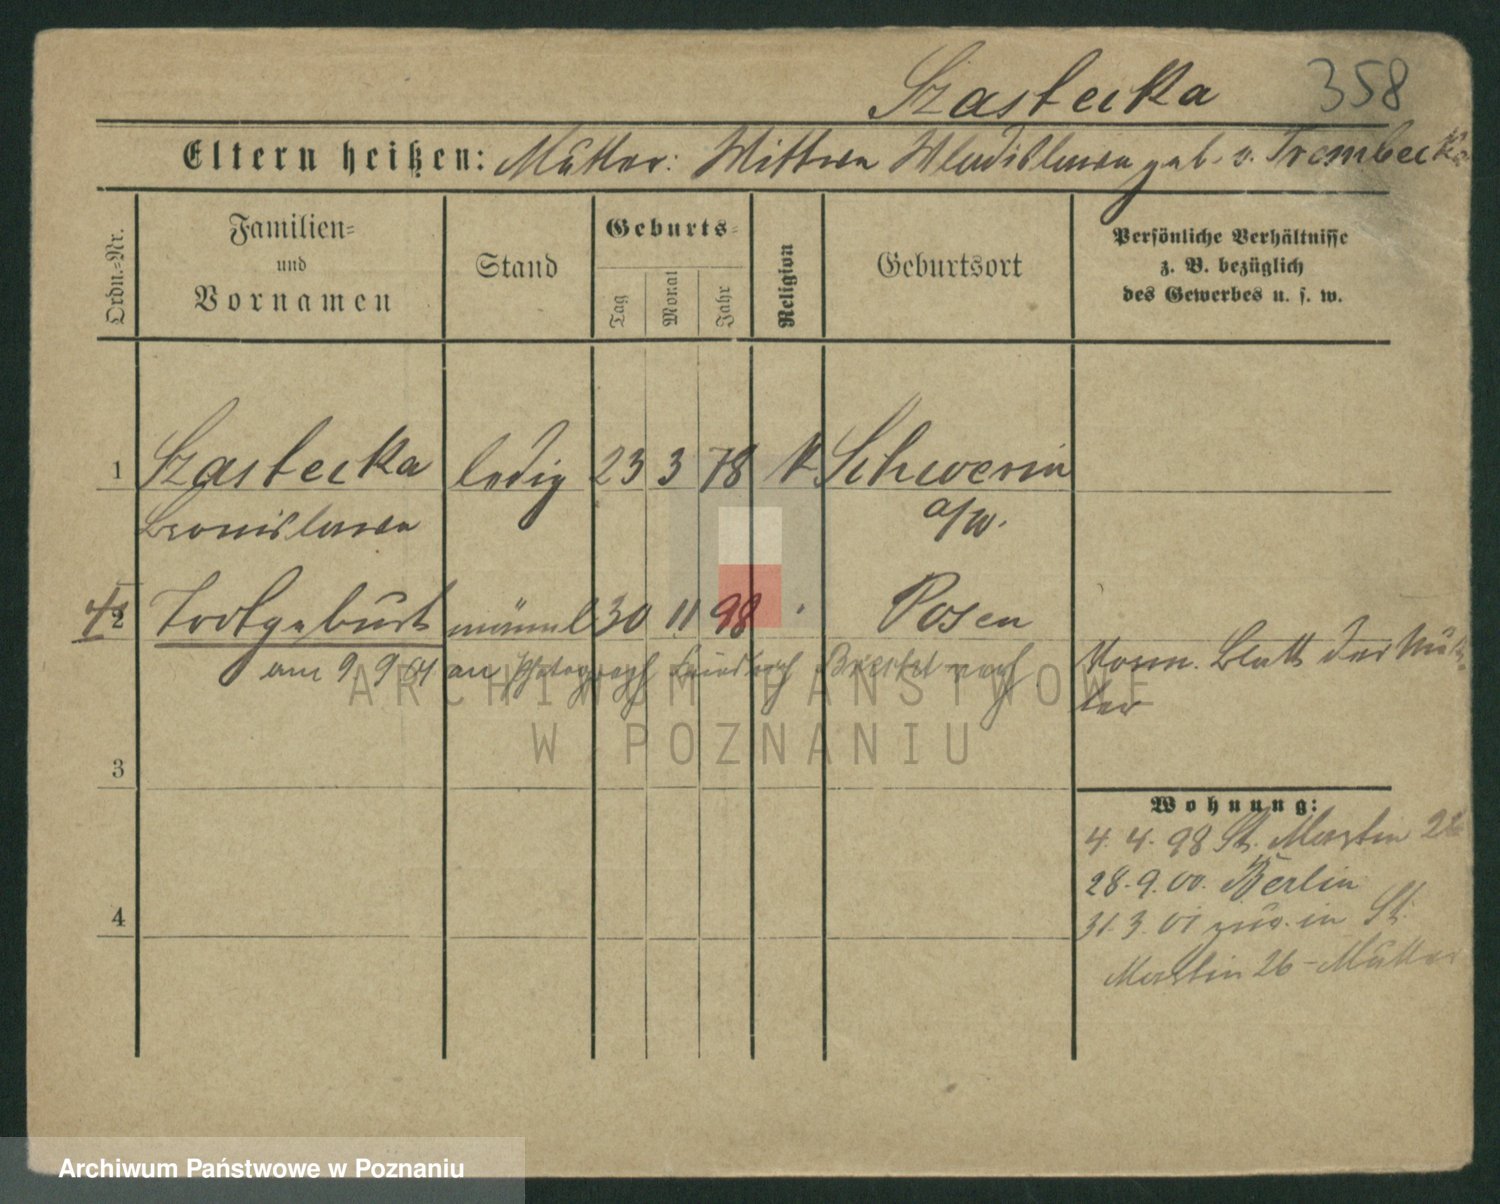 Szastecka 358
Eltern heißen: Mutter: Wittwe Wladislawa geb. v. Trembecka
Ordn.-Nr.
Familien-
und
Vornamen
Stand
Geburts-
Tag
Monat
Jahr
Religion
Geburtsort
Persönliche Verhältnisse
z. B. bezüglich
des Gewerbes u. s. w.
1 Szastecka ledig 23 3 78 k Schwerin
Bronislawa a/W.
2 Todtgeburt männl 30 11 98 Posen
am 9 9 01 an Photograph nach
Vorm. Blatt der Mut-
ter
3
4
Wohnung:
4. 4. 98 St. Martin 26
28. 9. 00. Berlin
31. 3. 01 zur. in St.
Martin 26 - Mutter
ARCHIWUM PAŃSTWOWE
W POZNANIU
Archiwum Państwowe w Poznaniu